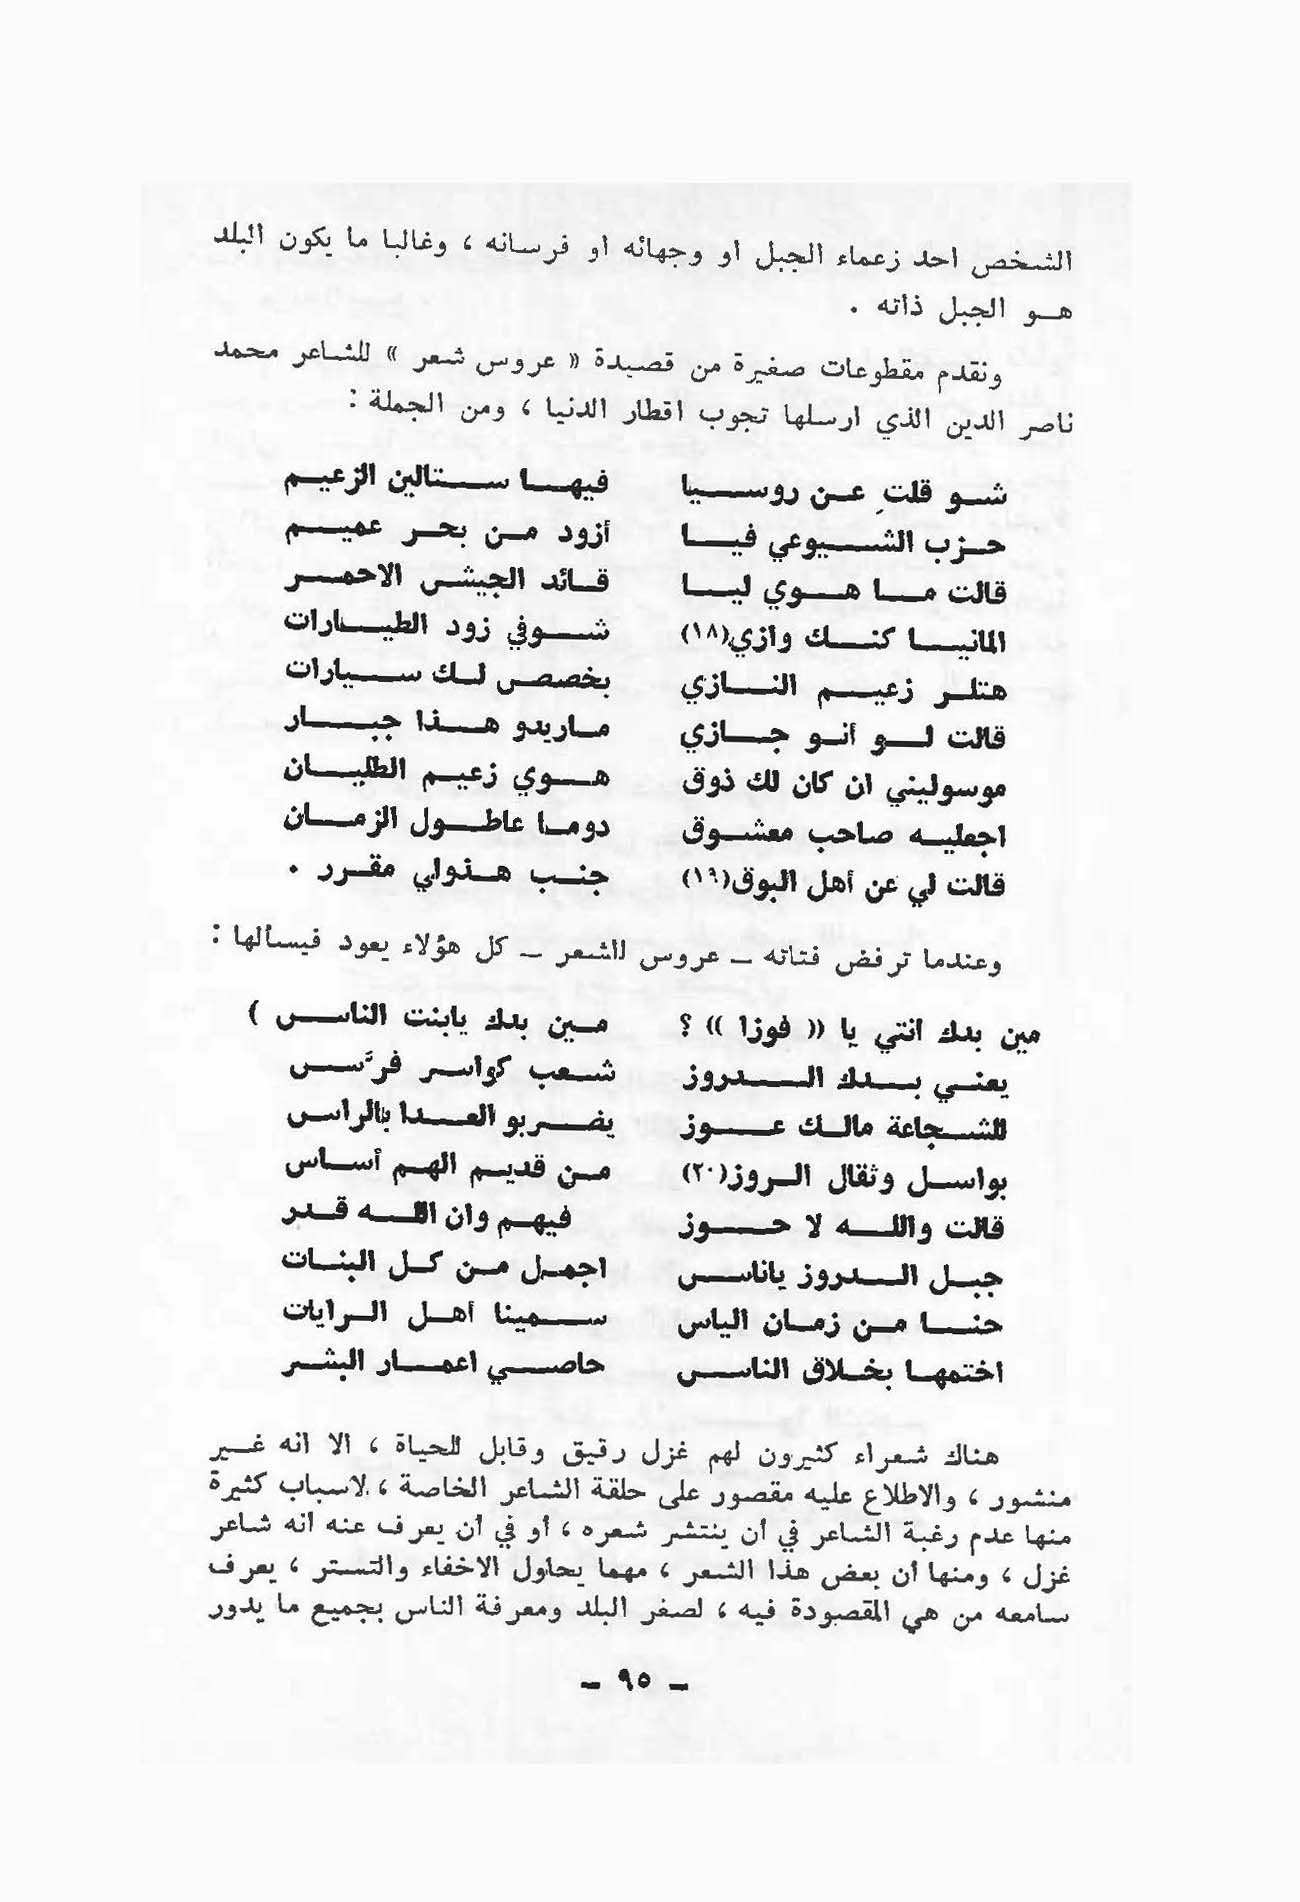 الشخص احد زعماء الجبل او وجهائه او فرسانه ، وغالبا ما يكون البلد
هو الجبل ذاته .
ونقدم مقطوعات صغيرة من قصيدة « عروس شعر » للشاعر محمد
ناصر الدين الذي ارسلها تجوب اقطار الدنيا ، ومن الجملة :
شو قلتِ عن روسيا فيها ستالين الزعيم
حزب الشيوعي فيا أزود من بحر عميم
قالت ما هوي ليا قائد الجيش الاحمر
المانيا كنك وازي(١٨) شوفي زود الطيارات
هتلر زعيم النازي بخصص لك سيارات
قالت لو أنو جازي ماريدو هذا جبار
موسوليني ان كان لك ذوق هوي زعيم الطليان
اجعليه صاحب معشوق دوما عاطول الزمان
قالت لي عن أهل البوق(١٩) جنب هذولي مقرر .
وعندما ترفض فتاته – عروس الشعر – كل هؤلاء يعود فيسألها :
مين بدك انتي يا (( فوزا )) ؟ مين بدك يابنت الناس )
يعني بدك الدروز شعب كواسر فرَّس
للشجاعة مالك عوز يضربو العدا بالراس
بواسل وثقال الروز(٢٠) من قديم الهم أساس
قالت والله لا حوز فيهم وان الله قدر
جبل الدروز ياناس اجمل من كل البنات
حنا من زمان الياس سمينا أهل الرايات
اختمها بخلاق الناس حاصي اعمار البشر
هناك شعراء كثيرون لهم غزل رقيق وقابل للحياة ، الا انه غير
منشور ، والاطلاع عليه مقصور على حلقة الشاعر الخاصة ، لاسباب كثيرة
منها عدم رغبة الشاعر في أن ينتشر شعره ، أو في أن يعرف عنه انه شاعر
غزل ، ومنها ان بعض هذا الشعر ، مهما يحاول الاخفاء والتستر ، يعرف
سامعه من هي المقصودة فيه ، لصغر البلد ومعرفة الناس بجميع ما يدور
– ٩٥ –